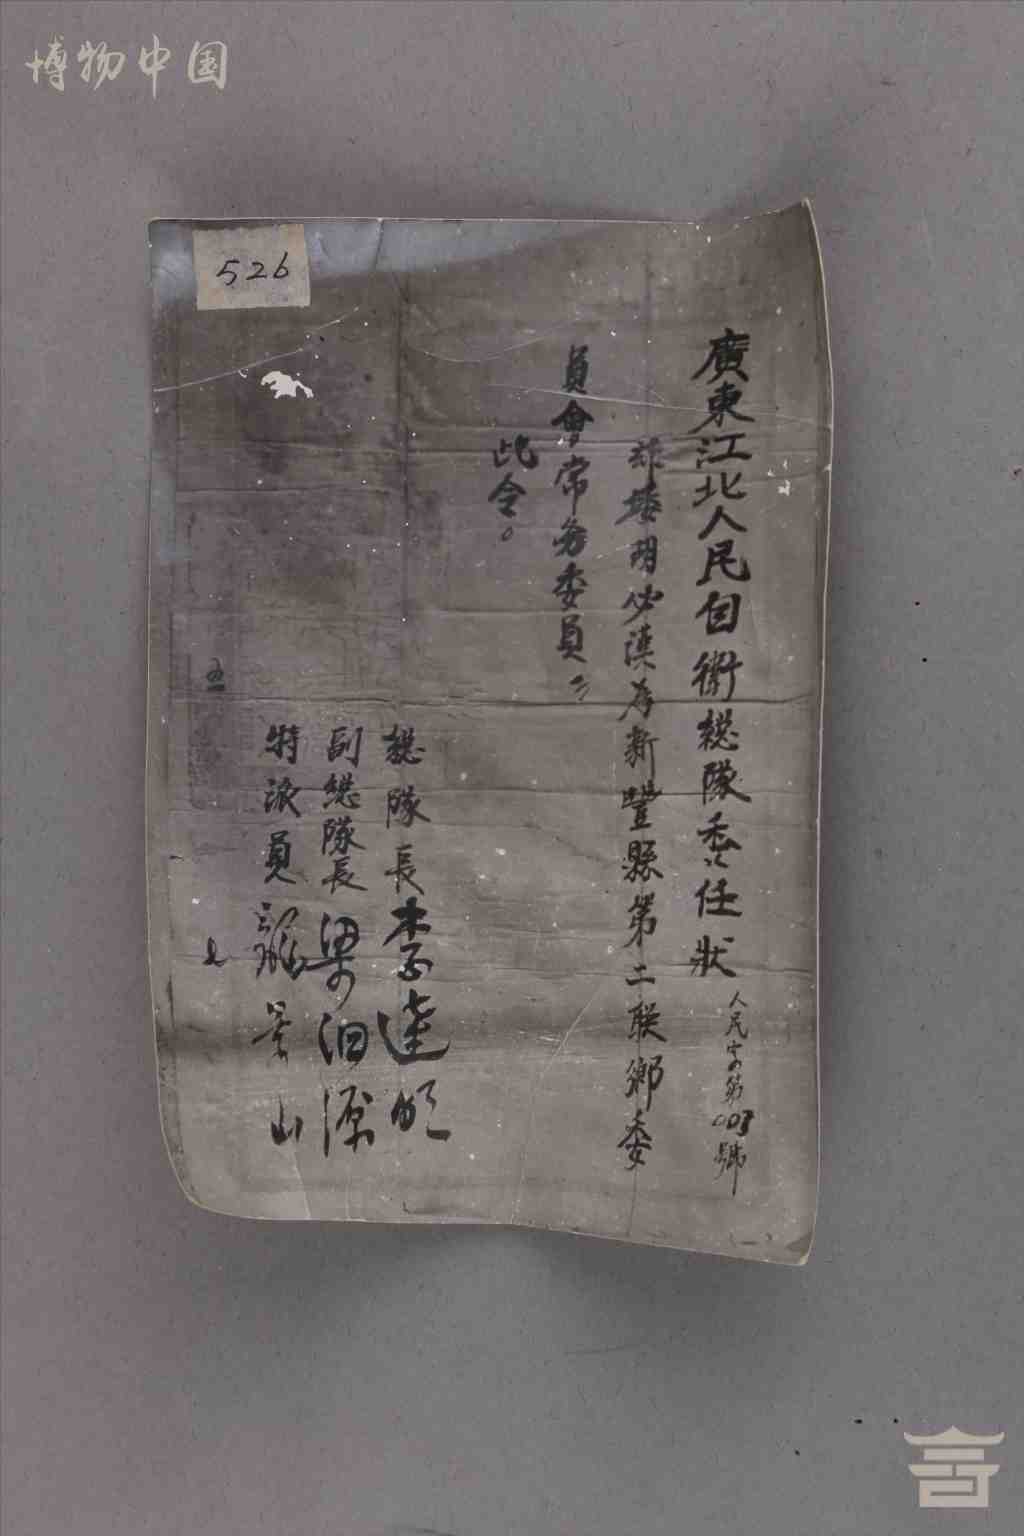 博物中国
526
廣東江北人民自衛総隊委任狀
人民字第003號
茲委胡必漢為新豐縣第二联鄉委
員會常务委員
此令。
総隊長 李達明
副総隊長 梁泗源
特派員 龍景山